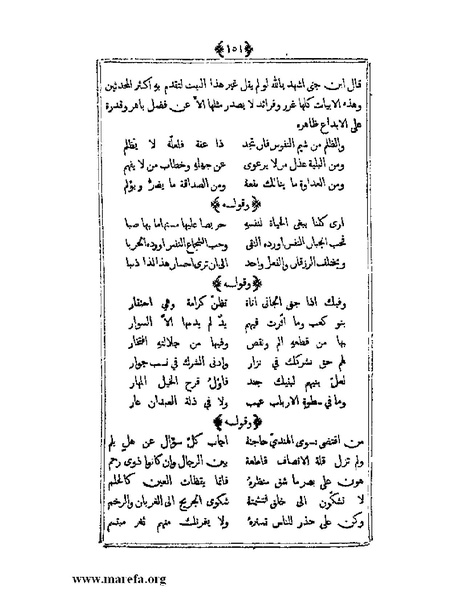 ﴿١٥١﴾
قال ابن جنى اشهد بالله لو لم يقل غير هذا البيت لتقدم به اكثر المحدثين
وهذه الابيات كلها غرر وفرائد لا يصدر مثلها الاّ عن فضل باهر وقدرة
على الابداع ظاهره
والظلم من شيم النفوس فان تجد ذا عفة فلعلّه لا يظلم
ومن البلية عذل من لا يرعوى عن جهله وخطاب من لا يفهم
ومن العداوة ما ينالك نفعه ومن الصداقة ما يضرّ ويؤلم
﴿وقوله﴾
ارى كلنا يبغى الحياة لنفسه حريصا عليها مستهاما بها صبا
فحب الجبان النفس اورده التقى وحب الشجاع النفس اورده الحربا
ويختلف الرزقان والفعل واحد الى ان ترى احسان هذا لذا ذنبا
﴿وقوله﴾
وفيك اذا جنى الجانى اناة تظنّ كرامة وهي احتقار
بنو كعب وما اثّرت فيهم يدٌ لم يدمها الاّ السوار
بها من قطعه الم ونقص وفيها من جلالته افتخار
لهم حق بشركك في نزار وادنى الشرك في نسب جوار
لعلّ بنيهم لبنيك جند فاوّل قرح الخيل المهار
وما في سطوة الارباب عيب ولا في ذلة العبدان عار
﴿وقوله﴾
من اقتضى بسوى الهنديّ حاجته اجاب كلّ سؤال عن هل بلم
ولم تزل قلة الانصاف قاطعة بين الرجال وان كانوا ذوى رحم
هون على بصر ما شق منظره فانما يقظات العين كالحلم
لا تشكونّ الى خلق فتشمته شكوى الجريح الى الغربان والرخم
وكن على حذر للناس تستره ولا يغرنك منهم ثغر مبتسم
www.marefa.org